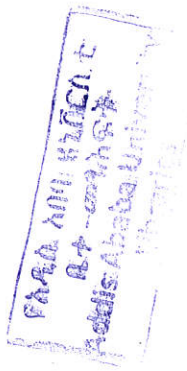 የአዲስ አበባ ዩኒቨርሲቲ
ቤተ-መጻሕፍት
Addis Ababa University